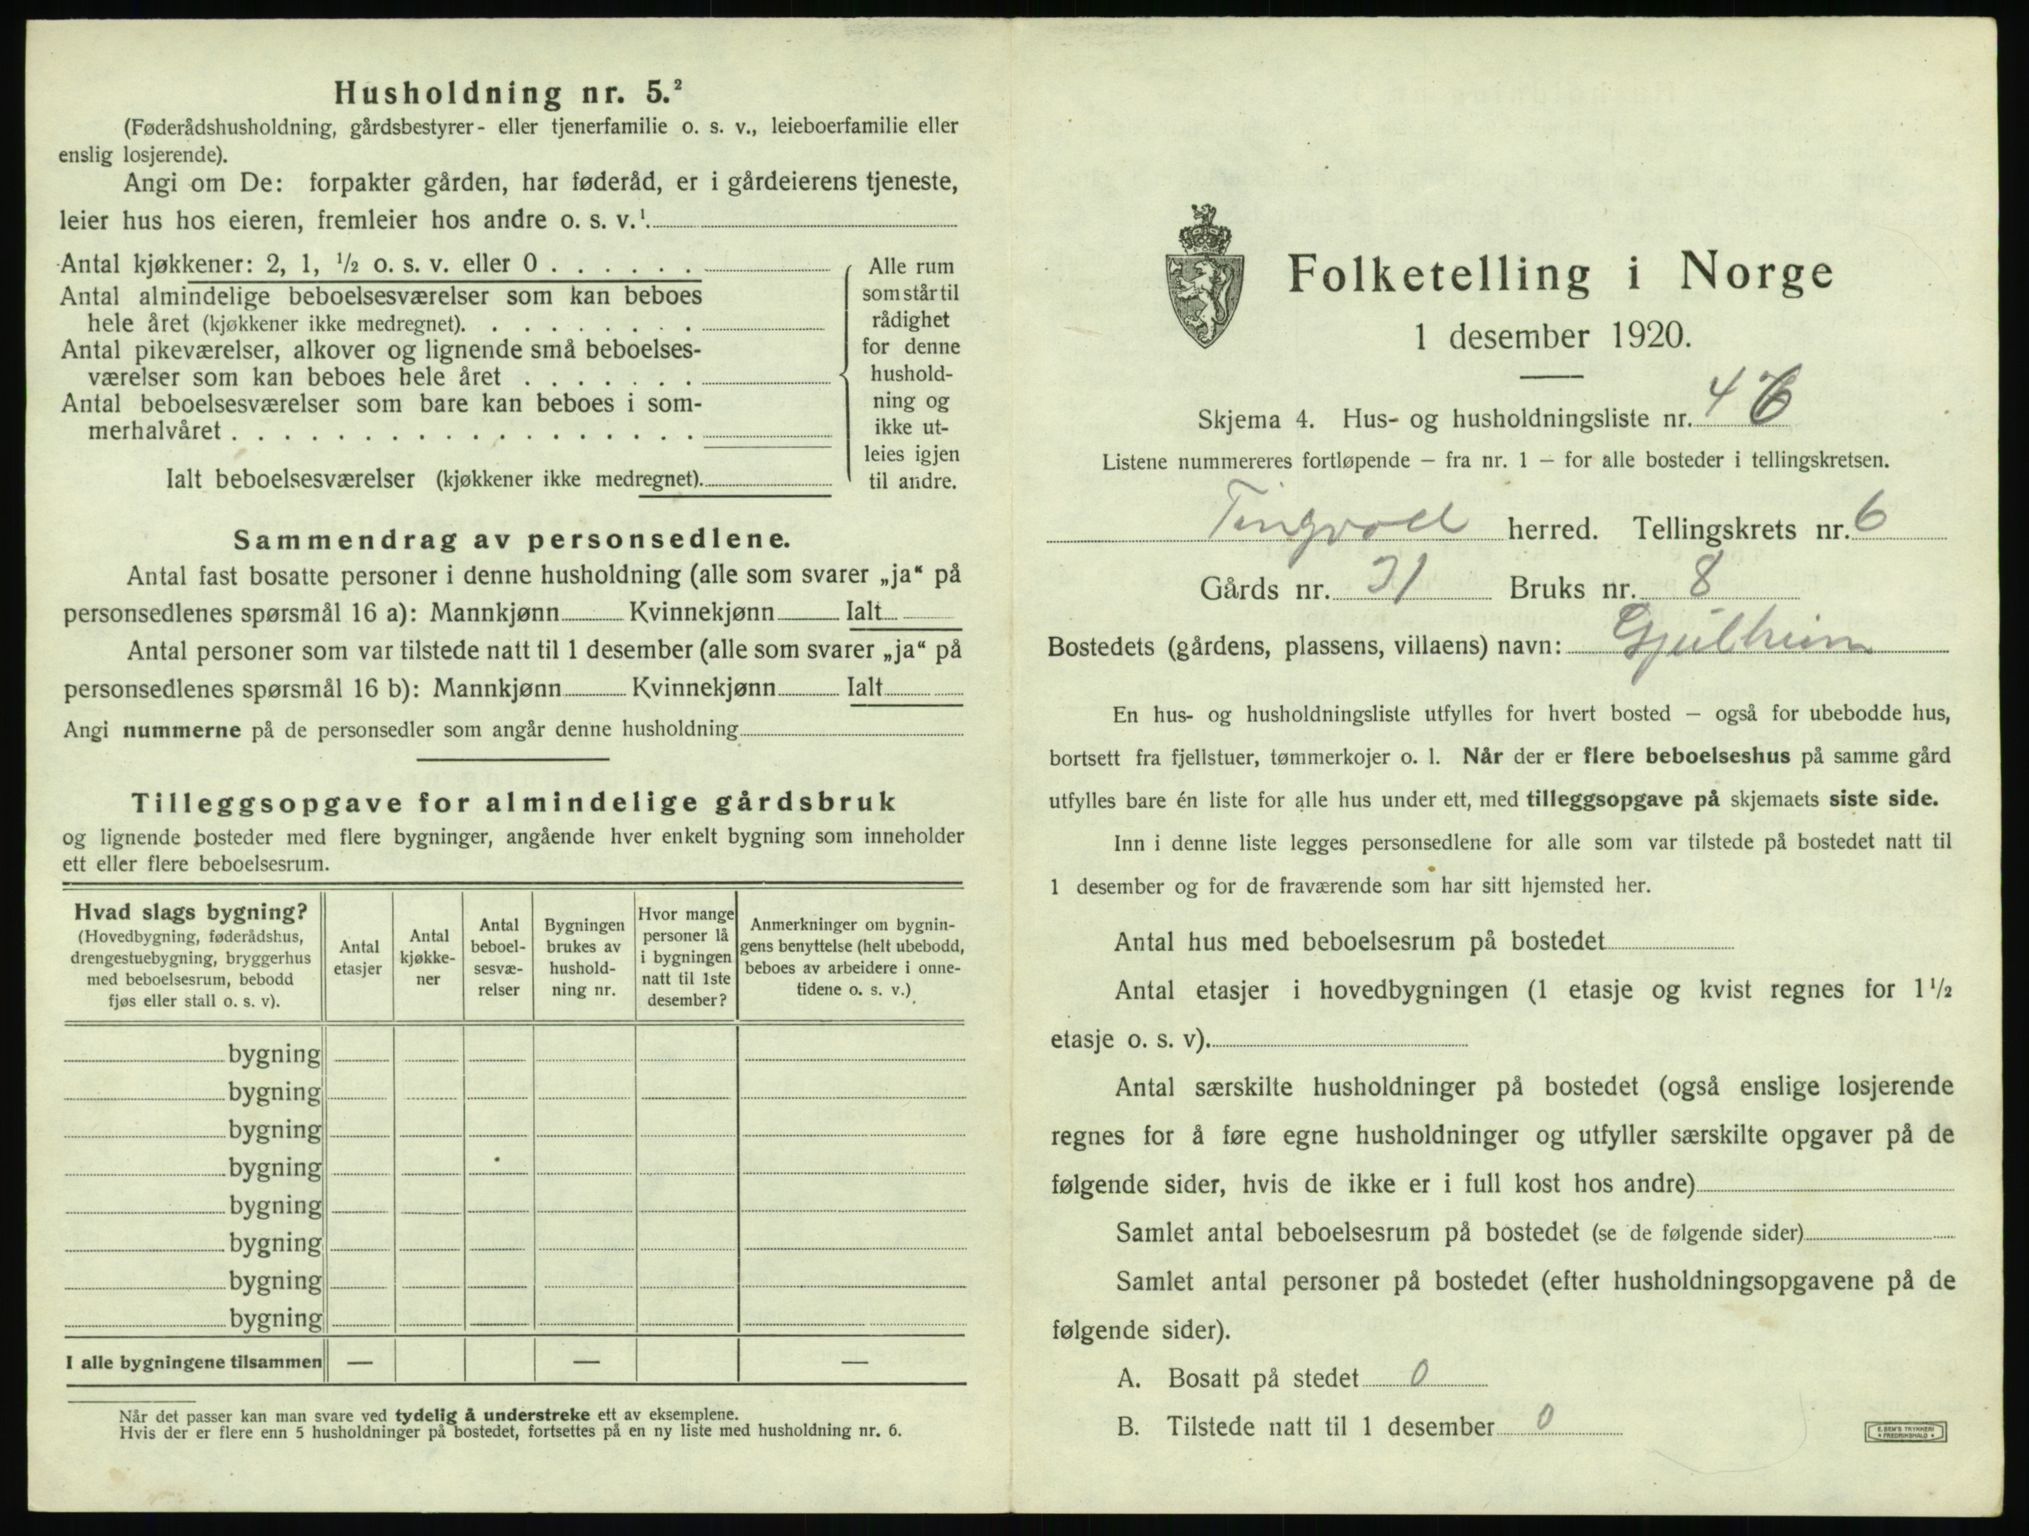 Husholdning nr. 5.²
(Føderådshusholdning, gårdsbestyrer- eller tjenerfamilie o. s. v., leieboerfamilie eller
enslig losjerende).
Angi om De: forpakter gården, har føderåd, er i gårdeierens tjeneste,
leier hus hos eieren, fremleier hos andre o. s. v.¹
Antal kjøkkener: 2, 1, ½ o. s. v. eller 0 . . . . . .
Antal almindelige beboelsesværelser som kan beboes
hele året (kjøkkener ikke medregnet). . . . . . . . .
Antal pikeværelser, alkover og lignende små beboelses-
værelser som kan beboes hele året . . . . . . .
Antal beboelsesværelser som bare kan beboes i som-
merhalvåret . . . . . . . . . . . . . . . . . .
Ialt beboelsesværelser (kjøkkener ikke medregnet).
Alle rum
som står til
rådighet
for denne
hushold-
ning og
ikke ut-
leies igjen
til andre.
Sammendrag av personsedlene.
Antal fast bosatte personer i denne husholdning (alle som svarer „ja“ på
personsedlenes spørsmål 16 a): Mannkjønn Kvinnekjønn Ialt
Antal personer som var tilstede natt til 1 desember (alle som svarer „ja“ på
personsedlenes spørsmål 16 b): Mannkjønn Kvinnekjønn Ialt
Angi nummerne på de personsedler som angår denne husholdning
Tilleggsopgave for almindelige gårdsbruk
og lignende bosteder med flere bygninger, angående hver enkelt bygning som inneholder
ett eller flere beboelsesrum.
Hvad slags bygning?
(Hovedbygning, føderådshus,
drengestuebygning, bryggerhus
med beboelsesrum, bebodd
fjøs eller stall o. s. v).
Antal
etasjer
Antal
kjøkke-
ner
Antal
beboel-
sesvæ-
relser
Bygningen
brukes av
hushold-
ning nr.
Hvor mange
personer lå
i bygningen
natt til 1ste
desember?
Anmerkninger om bygnin-
gens benyttelse (helt ubebodd,
beboes av arbeidere i onne-
tidene o. s. v.)
bygning
bygning
bygning
bygning
bygning
bygning
bygning
bygning
I alle bygningene tilsammen — — —
Når det passer kan man svare ved tydelig å understreke ett av eksemplene.
Hvis der er flere enn 5 husholdninger på bostedet, fortsettes på en ny liste med husholdning nr. 6.
Folketelling i Norge
1 desember 1920.
Skjema 4. Hus- og husholdningsliste nr. 46
Listene nummereres fortløpende – fra nr. 1 – for alle bosteder i tellingskretsen.
Tingvoll herred. Tellingskrets nr. 6
Gårds nr. 31 Bruks nr. 8
Bostedets (gårdens, plassens, villaens) navn: Gjulheim
En hus- og husholdningsliste utfylles for hvert bosted – også for ubebodde hus,
bortsett fra fjellstuer, tømmerkojer o. l. Når der er flere beboelseshus på samme gård
utfylles bare én liste for alle hus under ett, med tilleggsopgave på skjemaets siste side.
Inn i denne liste legges personsedlene for alle som var tilstede på bostedet natt til
1 desember og for de fraværende som har sitt hjemsted her.
Antal hus med beboelsesrum på bostedet
Antal etasjer i hovedbygningen (1 etasje og kvist regnes for 1½
etasje o. s. v).
Antal særskilte husholdninger på bostedet (også enslige losjerende
regnes for å føre egne husholdninger og utfyller særskilte opgaver på de
følgende sider, hvis de ikke er i full kost hos andre)
Samlet antal beboelsesrum på bostedet (se de følgende sider)
Samlet antal personer på bostedet (efter husholdningsopgavene på de
følgende sider).
A. Bosatt på stedet 0
B. Tilstede natt til 1 desember 0
E. SEM'S TRYKKERI
FREDRIKSHALD